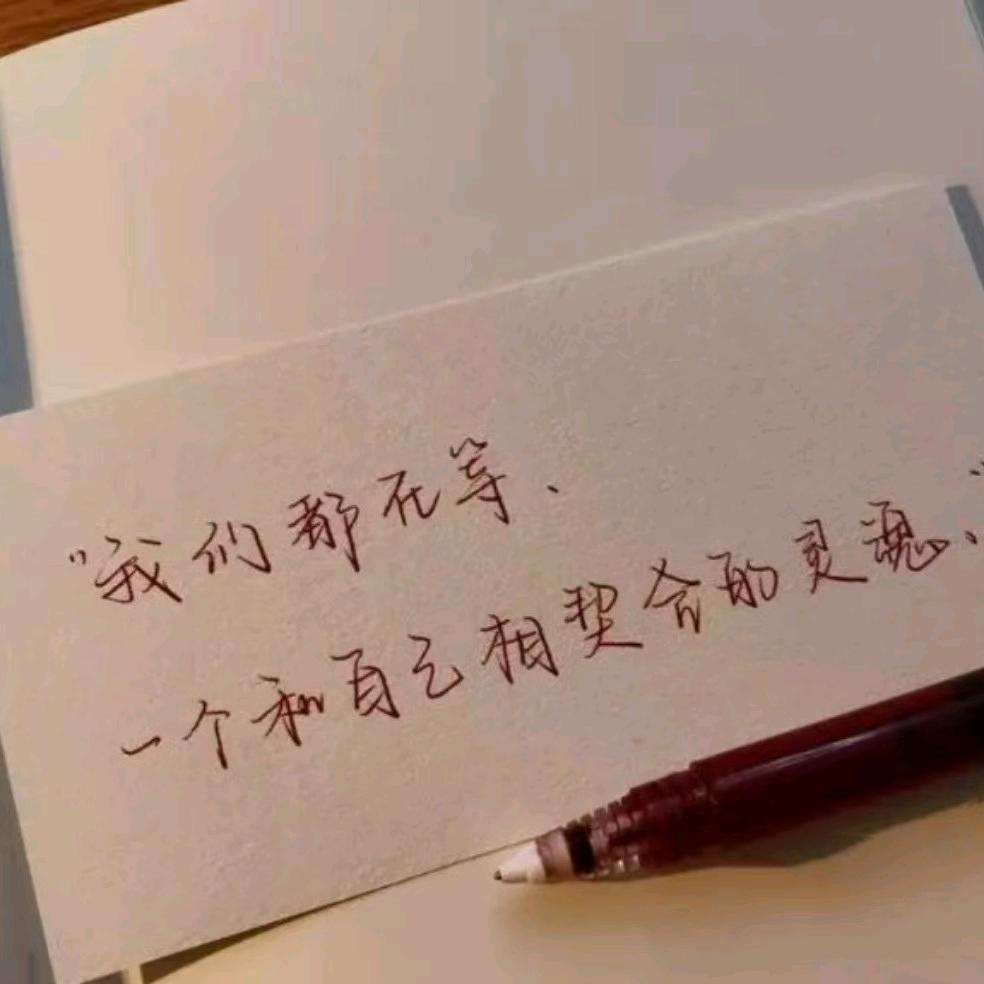 “我们都在等、
一个和自己相契合的灵魂、”